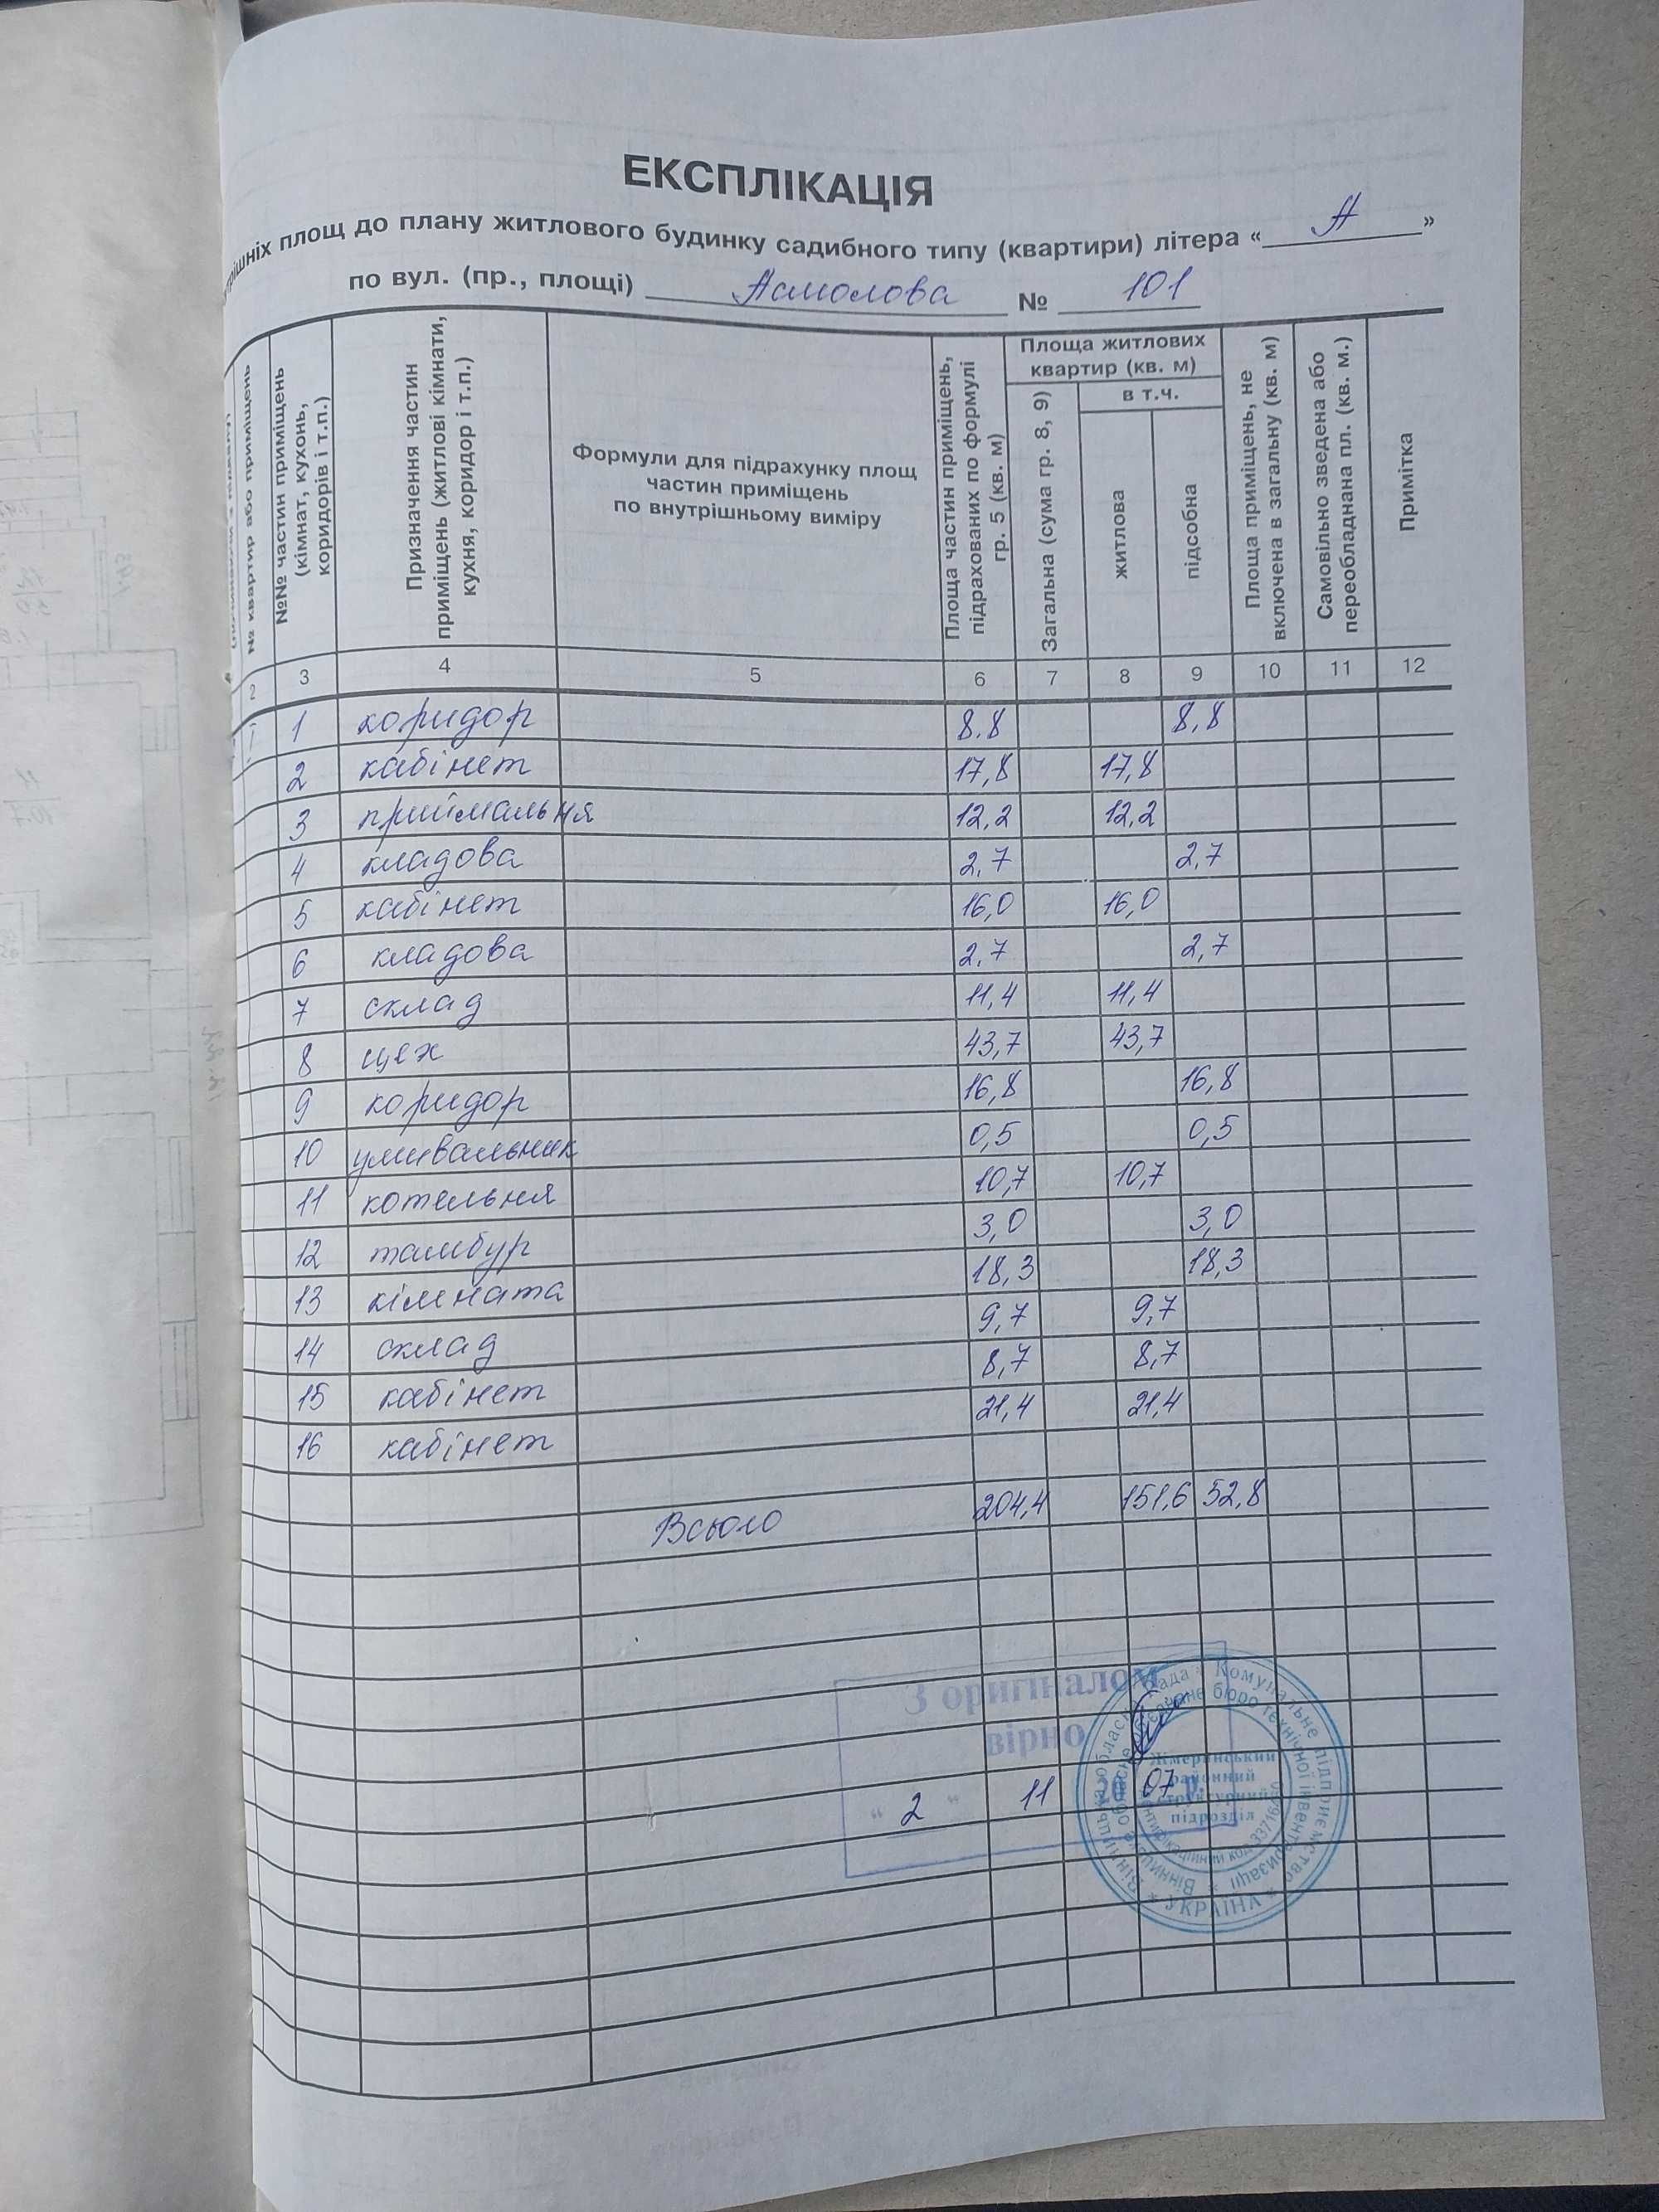 ЕКСПЛІКАЦІЯ
площ до плану житлового будинку садибного типу (квартири) літера « А »
по вул. (пр., площі) Асмолова № 101
№ квартир або приміщень
№№ частин приміщень (кімнат, кухонь, коридорів і т.п.)
Призначення частин приміщень (житлові кімнати, кухня, коридор і т.п.)
Формули для підрахунку площ
частин приміщень
по внутрішньому виміру
Площа частин приміщень, підрахованих по формулі гр. 5 (кв. м)
Площа житлових
квартир (кв. м)
Загальна (сума гр. 8, 9)
в т.ч.
житлова
підсобна
Площа приміщень, не включена в загальну (кв. м)
Самовільно зведена або переобладнана пл. (кв. м.)
Примітка
2 3 4 5 6 7 8 9 10 11 12
1 коридор 8.8 8,8
2 кабінет 17,8 17,8
3 приймальня 12,2 12,2
4 кладова 2,7 2,7
5 кабінет 16,0 16,0
6 кладова 2,7 2,7
7 склад 11,4 11,4
8 цех 43,7 43,7
9 коридор 16,8 16,8
10 умивальник 0,5 0,5
11 котельня 10,7 10,7
12 тамбур 3,0 3,0
13 кімната 18,3 18,3
14 склад 9,7 9,7
15 кабінет 8,7 8,7
16 кабінет 21,4 21,4
Всього 204,4 151,6 52,8
З оригіналом
вірно
" 2 " 11 2007 р.
Комунальне підприємство
бюро технічної інвентаризації
Жмеринський
районний
структурний
підрозділ
* УКРАЇНА *